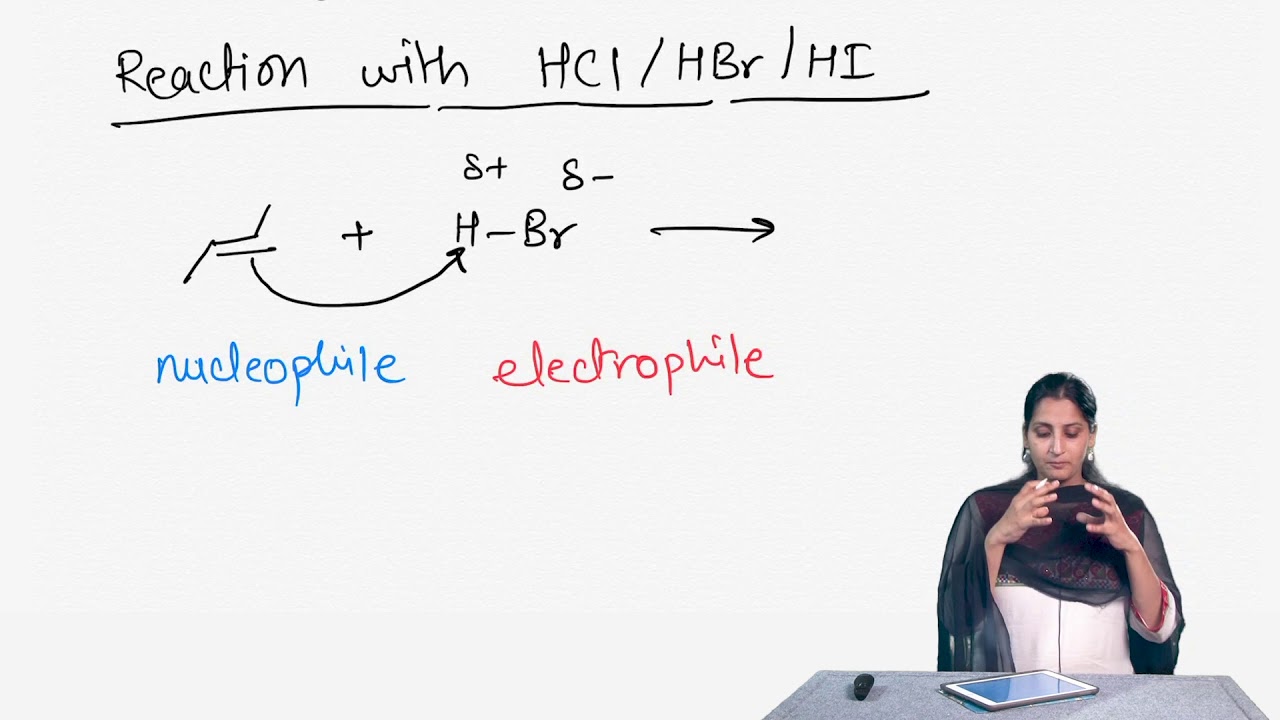 Reaction with HCl/HBr/HI
δ+ δ-
+ H-Br ⟶
nucleophile electrophile